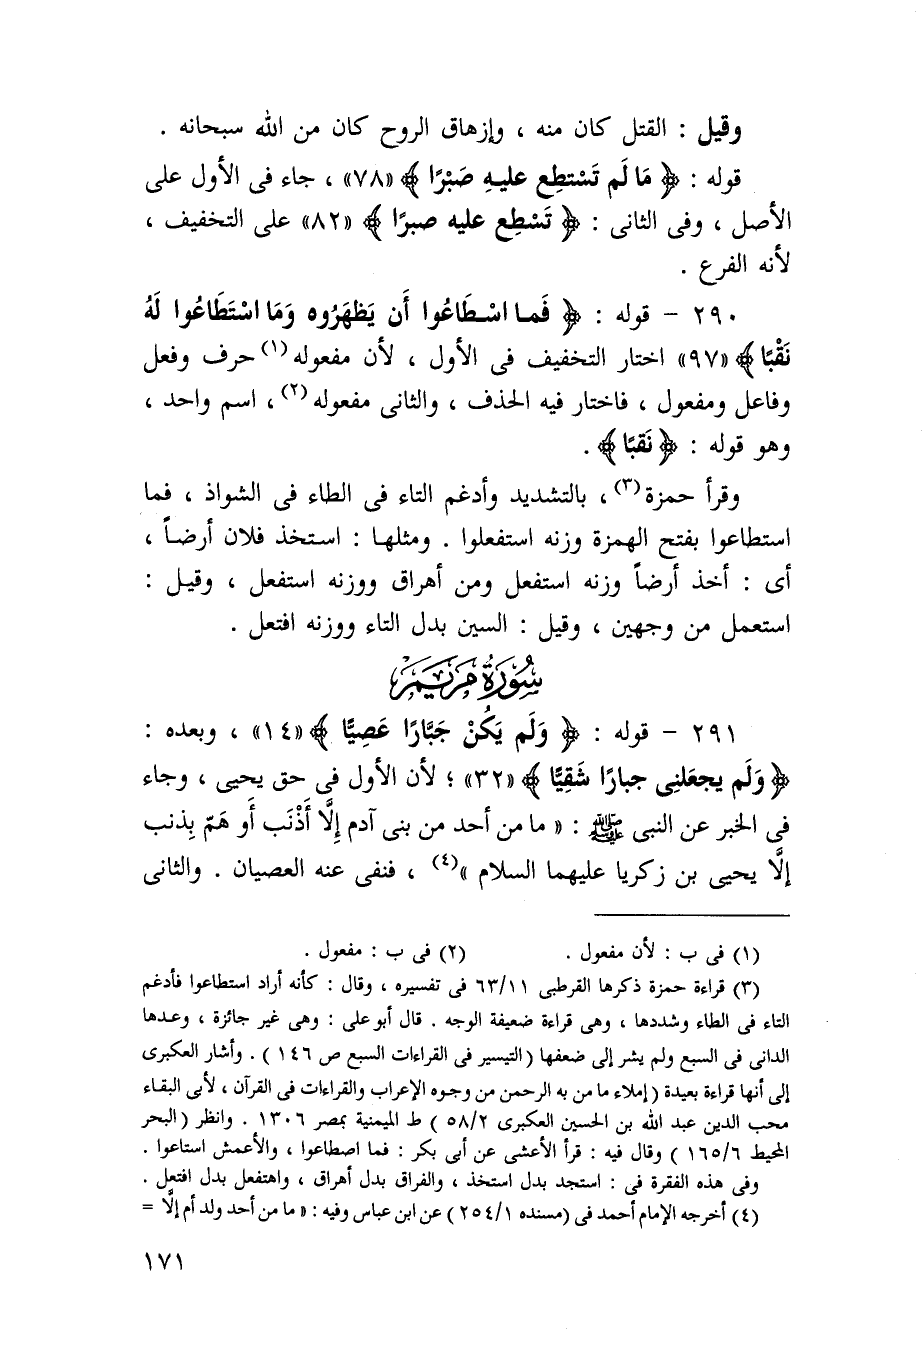 وقيل : القتل كان منه ، وإزهاق الروح كان من الله سبحانه .
قوله : ﴿ مَا لَم تَسْتطِع عليهِ صَبْرًا ﴾ «٧٨» ، جاء فى الأول على
الأصل ، وفى الثانى : ﴿ تَسْطِع عليه صبرًا ﴾ «٨٢» على التخفيف ،
لأنه الفرع .
٢٩٠ - قوله : ﴿ فَمـا اسْـطَاعُوا أَن يَظهَرُوه وَمَا اسْتَطَاعُوا لَهُ
نَقْبًا ﴾ «٩٧» اختار التخفيف فى الأول ، لأن مفعوله (١) حرف وفعل
وفاعل ومفعول ، فاختار فيه الحذف ، والثانى مفعوله (٢) ، اسم واحد ،
وهو قوله : ﴿ نَقبًا ﴾ .
وقرأ حمزة (٣) ، بالتشديد وأدغم التاء فى الطاء فى الشواذ ، فما
استطاعوا بفتح الهمزة وزنه استفعلوا . ومثلهـا : استخذ فلان أرضـاً ،
أى : أخذ أرضاً وزنه استفعل ومن أهراق ووزنه استفعل ، وقيـل :
استعمل من وجهين ، وقيل : السين بدل التاء ووزنه افتعل .
سُورَةُ مَريَمَ
٢٩١ - قوله : ﴿ وَلَم يَكُنْ جَبَّارًا عَصِيًّا ﴾ «١٤» ، وبعده :
﴿ وَلَم يجعَلنِى جبارًا شَقِيًّا ﴾ «٣٢» ؛ لأن الأول فى حق يحيى ، وجاء
فى الخبر عن النبى ﷺ : « ما من أحد من بنى آدم إِلَّا أَذْنَب أَو هَمّ بِذنب
إلَّا يحيى بن زكريا عليهما السلام »(٤) ، فنفى عنه العصيان . والثانى
(١) فى ب : لأن مفعول . (٢) فى ب : مفعول .
(٣) قراءة حمزة ذكرها القرطبى ٦٣/١١ فى تفسيره ، وقال : كأنه أراد استطاعوا فأدغم
التاء فى الطاء وشددها ، وهى قراءة ضعيفة الوجه . قال أبو على : وهى غير جائزة ، وعدها
الدانى فى السبع ولم يشر إلى ضعفها ( التيسير فى القراءات السبع ص ١٤٦ ) . وأشار العكبرى
إلى أنها قراءة بعيدة ( إملاء ما من به الرحمن من وجوه الإعراب والقراءات فى القرآن ، لأبى البقاء
محب الدين عبد الله بن الحسين العكبرى ٥٨/٢ ) ط الميمنية بمصر ١٣٠٦ . وانظر ( البحر
المحيط ١٦٥/٦ ) وقال فيه : قرأ الأعشى عن أبى بكر : فما اصطاعوا ، والأعمش استاعوا .
وفى هذه الفقرة فى : استجد بدل استخذ ، والفراق بدل أهراق ، واهتفعل بدل افتعل .
(٤) أخرجه الإمام أحمد فى ( مسنده ٢٥٤/١ ) عن ابن عباس وفيه : « ما من أحد ولد أم إلَّا =
١٧١